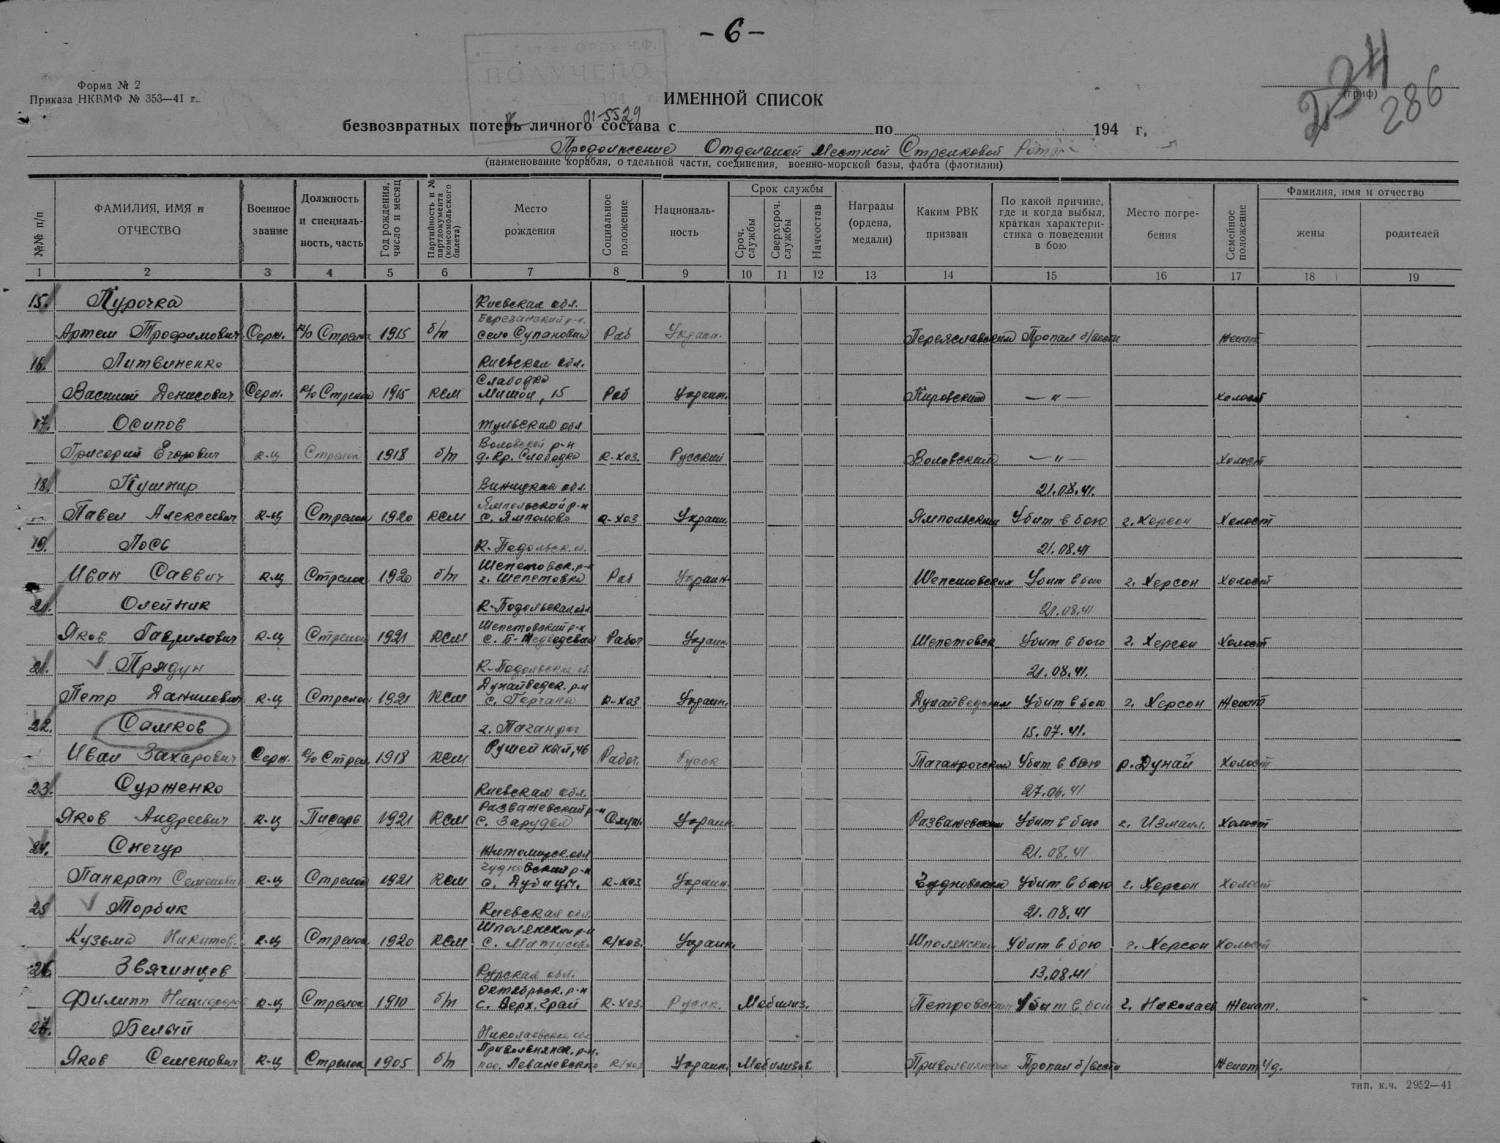 - 6 -
ПОЛУЧЕНО
Форма № 2
Приказа НКВМФ № 353—41 г.
ИМЕННОЙ СПИСОК
01-5529
286
(гриф)
безвозвратных потерь личного состава с по 194 г.
Продолжение Отдельной Местной Стрелковой Роты
(наименование корабля, отдельной части, соединения, военно-морской базы, флота (флотилии)
№№ п/п
ФАМИЛИЯ, ИМЯ и ОТЧЕСТВО
Военное звание
Должность и специальность, часть
Год рождения, число и месяц
Партийность и № партдокумента (комсомольского билета)
Место рождения
Социальное положение
Национальность
Срок службы
Сроч. службы
Сверхсроч. службы
Начсостав
Награды (ордена, медали)
Каким РВК призван
По какой причине, где и когда выбыл, краткая характеристика о поведении в бою
Место погребения
Семейное положение
Фамилия, имя и отчество
жены
родителей
1 2 3 4 5 6 7 8 9 10 11 12 13 14 15 16 17 18 19
15. Курочка Киевская обл.
Березанский р-н
Артем Трофимович Серж. к/о Стрелк 1915 б/п село Супановка Раб Украин. Переяславский Пропал б/вести Женат
16. Литвиненко Киевская обл.
Слободка
Василий Денисович Серж. к/о Стрелк 1915 КСМ 15 Раб Украин. Кировский — " — Холост
17. Осипов Тульская обл
Воловский р-н
Григорий Егорович к-ц Стрелок 1918 б/п д. Кр. Слободка к-хоз Русский Воловский — " — Холост
18. Кушнир Виницкая обл. 21.08.41.
Ямпольский р-н
Павел Алексеевич к-ц Стрелок 1920 КСМ с. Ямполово к-хоз Украин Ямпольский Убит в бою г. Херсон Холост
19. Лось К-Подольск. об. 21.08.41
Шепетовск. р-н
Иван Саввич к-ц Стрелок 1920 б/п г. Шепетовка Раб Украин Шепетовский Убит в бою г. Херсон Холост
Олейник К-Подольская обл 21.08.41
Шепетовский р-н
Яков Гаврилович к-ц Стрелок 1921 КСМ с. Б-Медведевка Работ Украин Шепетовск Убит в бою г. Херсон Холост
21. Прядун К-Подольская об. 21.08.41.
Дунайведск. р-н
Петр Данилович к-ц Стрелок 1921 КСМ с. Горчана к-хоз Украин. Дунайведским Убит в бою г. Херсон Женат
22. Самков г. Таганрог 15.07.41.
Иван Захарович Серж. к/о Стрел. 1918 КСМ 46 Работ. Русск Таганрогским Убит в бою р. Дунай Холост
23. Сурженко Киевская обл. 27.06.41
Розважевский р-н
Яков Андреевич к-ц Писарь 1921 КСМ с. Зарудье Служ. Украин. Розважевский Убит в бою г. Измаил. Холост
24. Снегур Житомирск. обл 21.08.41
Чудновский р-н
Панкрат Семенович к-ц Стрелок 1921 КСМ с. Дубищи. к-хоз Украин. Чудновский Убит в бою г. Херсон Холост
25 Торбик Киевская обл. 21.08.41
Шполянский р-н
Кузьма Никитов. к-ц Стрелок 1920 КСМ с. Матусово к/хоз. Украин. Шполянский Убит в бою г. Херсон Холост
26. Звягинцев Курская обл. 13.08.41
Октябрьск. р-н
Филипп к-ц Стрелок 1910 б/п с. Верх. Грай к-хоз. Русск. Мобилиз. Петровским Убит в бою г. Николаев Женат.
27. Белый Николаевская обл
Привольнянск. р-н.
Яков Семенович к-ц Стрелок 1905 б/п пос. Леваневского к/хоз Украин. Мобилизов. Привольнянским Пропал б/вести Женат ч/д.
тип. к.ч. 2952—41